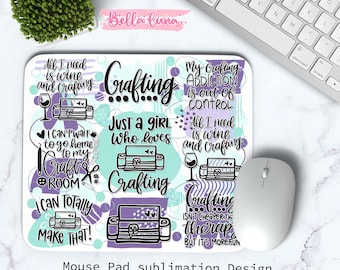 Bella Luna
All I need
is wine
and Crafting
Crafting
My Crafting
ADDICTION
is out of
CONTROL
I CAN'T WAIT
to go home
to my
Crafts
ROOM
JUST A GIRL
Who LOVES
Crafting
All I need
is wine
and Crafting
I CAN TOTALLY
MAKE THAT!
Crafting
ISN'T
therapy
BUT IT'S
Mouse Pad sublimation Design